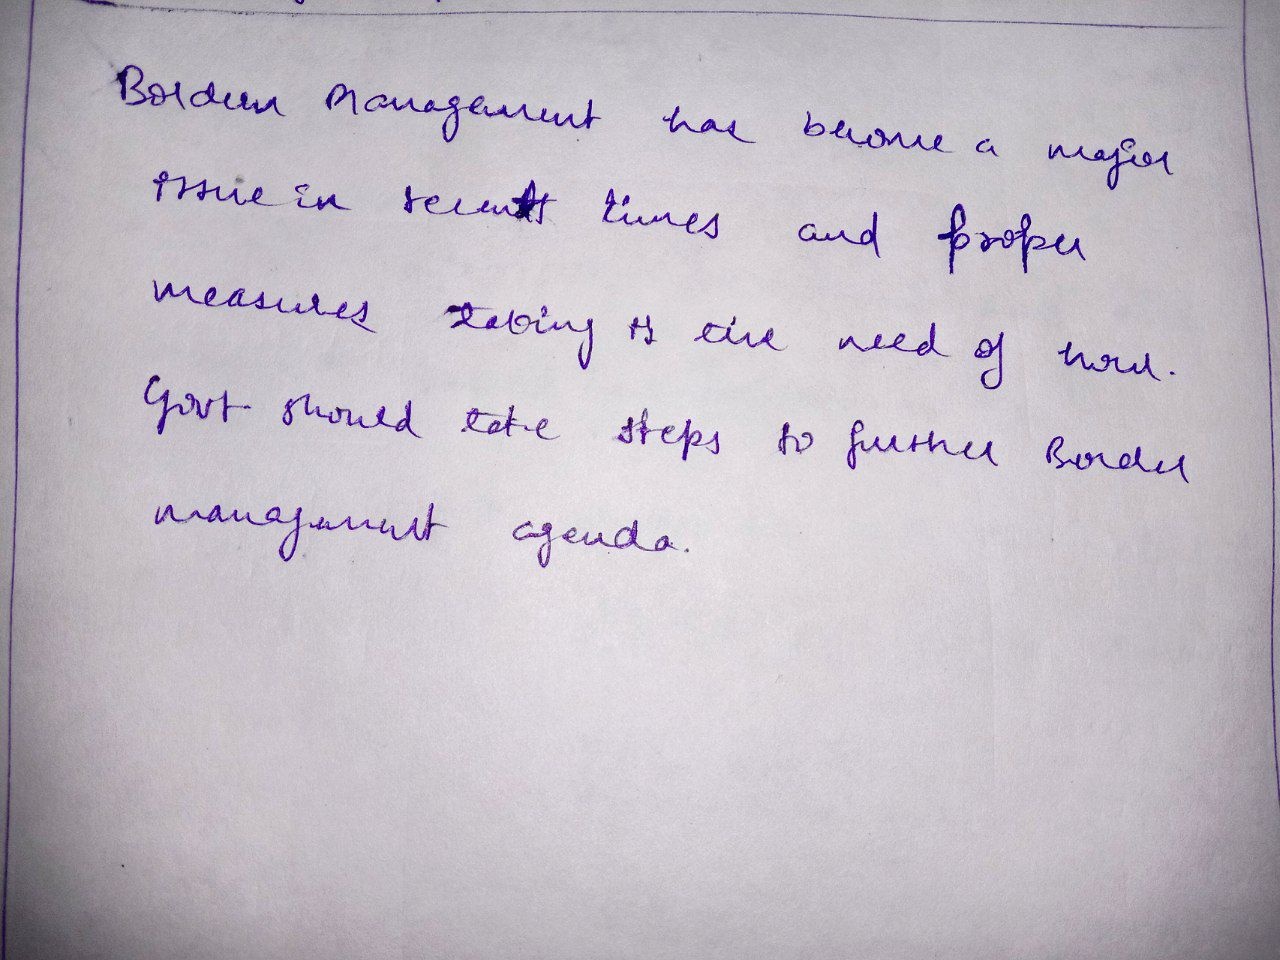 Border Management has become a major
issue in recent times and proper
measures taking is the need of hour.
Govt. should take steps to further Border
management agenda.